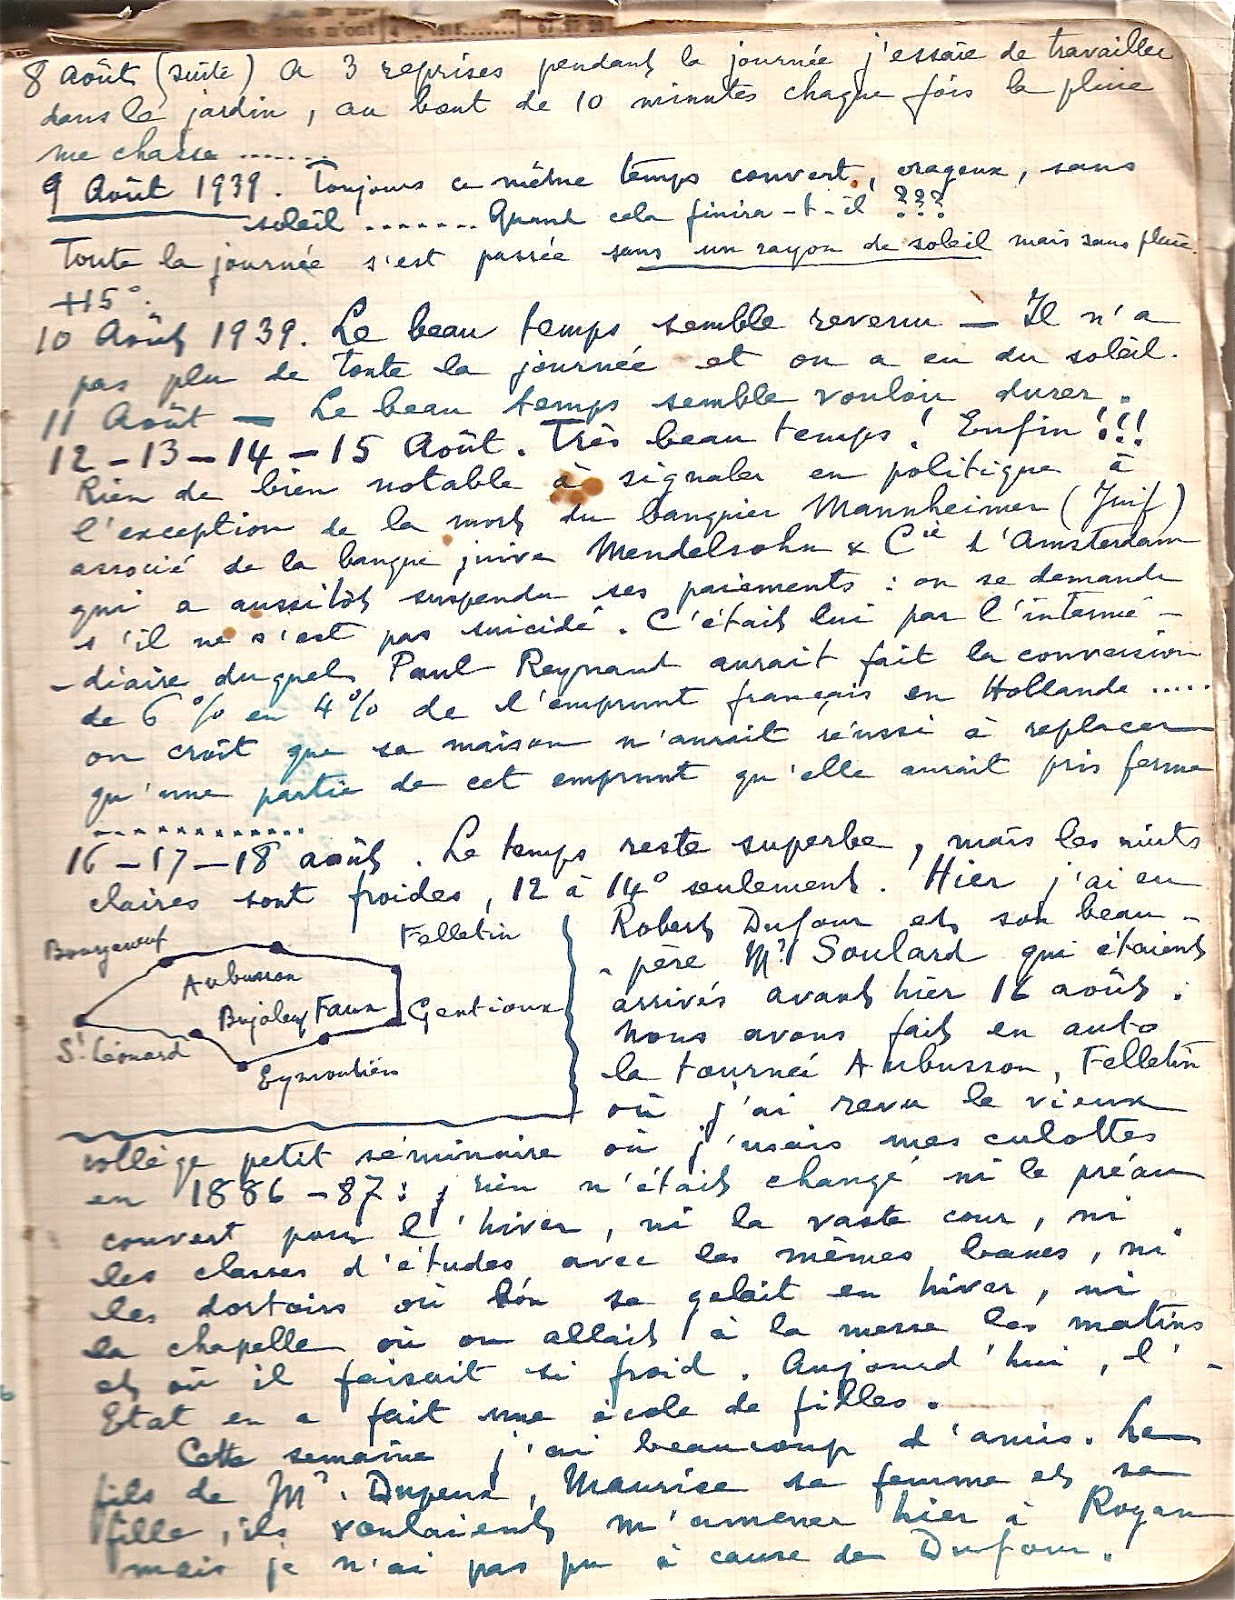 8 Août (suite) A 3 reprises pendant la journée j'essaie de travailler
dans le jardin, au bout de 10 minutes chaque fois la pluie
me chasse .......
9 Août 1939. Toujours ce même temps couvert, orageux, sans
soleil ....... Quand cela finira-t-il ???
Toute la journée s'est passée sans un rayon de soleil mais sans pluie.
+15°.
10 Août 1939. Le beau temps semble revenu — Il n'a
pas plu de toute la journée et on a eu du soleil.
11 Août — Le beau temps semble vouloir durer.
12 - 13 - 14 - 15 Août. Très beau temps! Enfin!!!
Rien de bien notable à signaler en politique à
l'exception de la mort du banquier Mannheimer (Juif)
associé de la banque juive Mendelsohn & Cie d'Amsterdam
qui a aussitôt suspendu ses paiements : on se demande
s'il ne s'est pas suicidé. C'était lui par l'intermé-
-diaire duquel Paul Reynaud aurait fait la conversion
de 6% en 4% de l'emprunt français en Hollande .....
on croit que sa maison n'aurait réussi à replacer
qu'une partie de cet emprunt qu'elle aurait pris ferme
.............
16 - 17 - 18 août. Le temps reste superbe, mais les nuits
claires sont froides, 12 à 14° seulement. Hier j'ai eu
Bourganeuf
Aubusson
Felletin
Gentioux
Faux
Bujaleuf
Eymoutiers
St Léonard
Robert Dufour et son beau-
-père Mr Soulard qui étaient
arrivés avant hier 16 août.
Nous avons fait en auto
la tournée Aubusson, Felletin
où j'ai revu le vieux
collège petit séminaire où j'usais mes culottes
en 1886-87 : rien n'était changé ni le préau
couvert pour l'hiver, ni la vaste cour, ni
les classes d'études avec les mêmes bancs, ni
les dortoirs où l'on se gelait en hiver, ni
la chapelle où on allait à la messe les matins
et où il faisait si froid. Aujourd'hui, l'-
Etat en a fait une école de filles.
Cette semaine j'ai beaucoup d'amis. Le
fils de Mr. Dupeux, Maurice sa femme et sa
fille, ils voulaient m'amener hier à Royan
mais je n'ai pas pu à cause de Dufour.